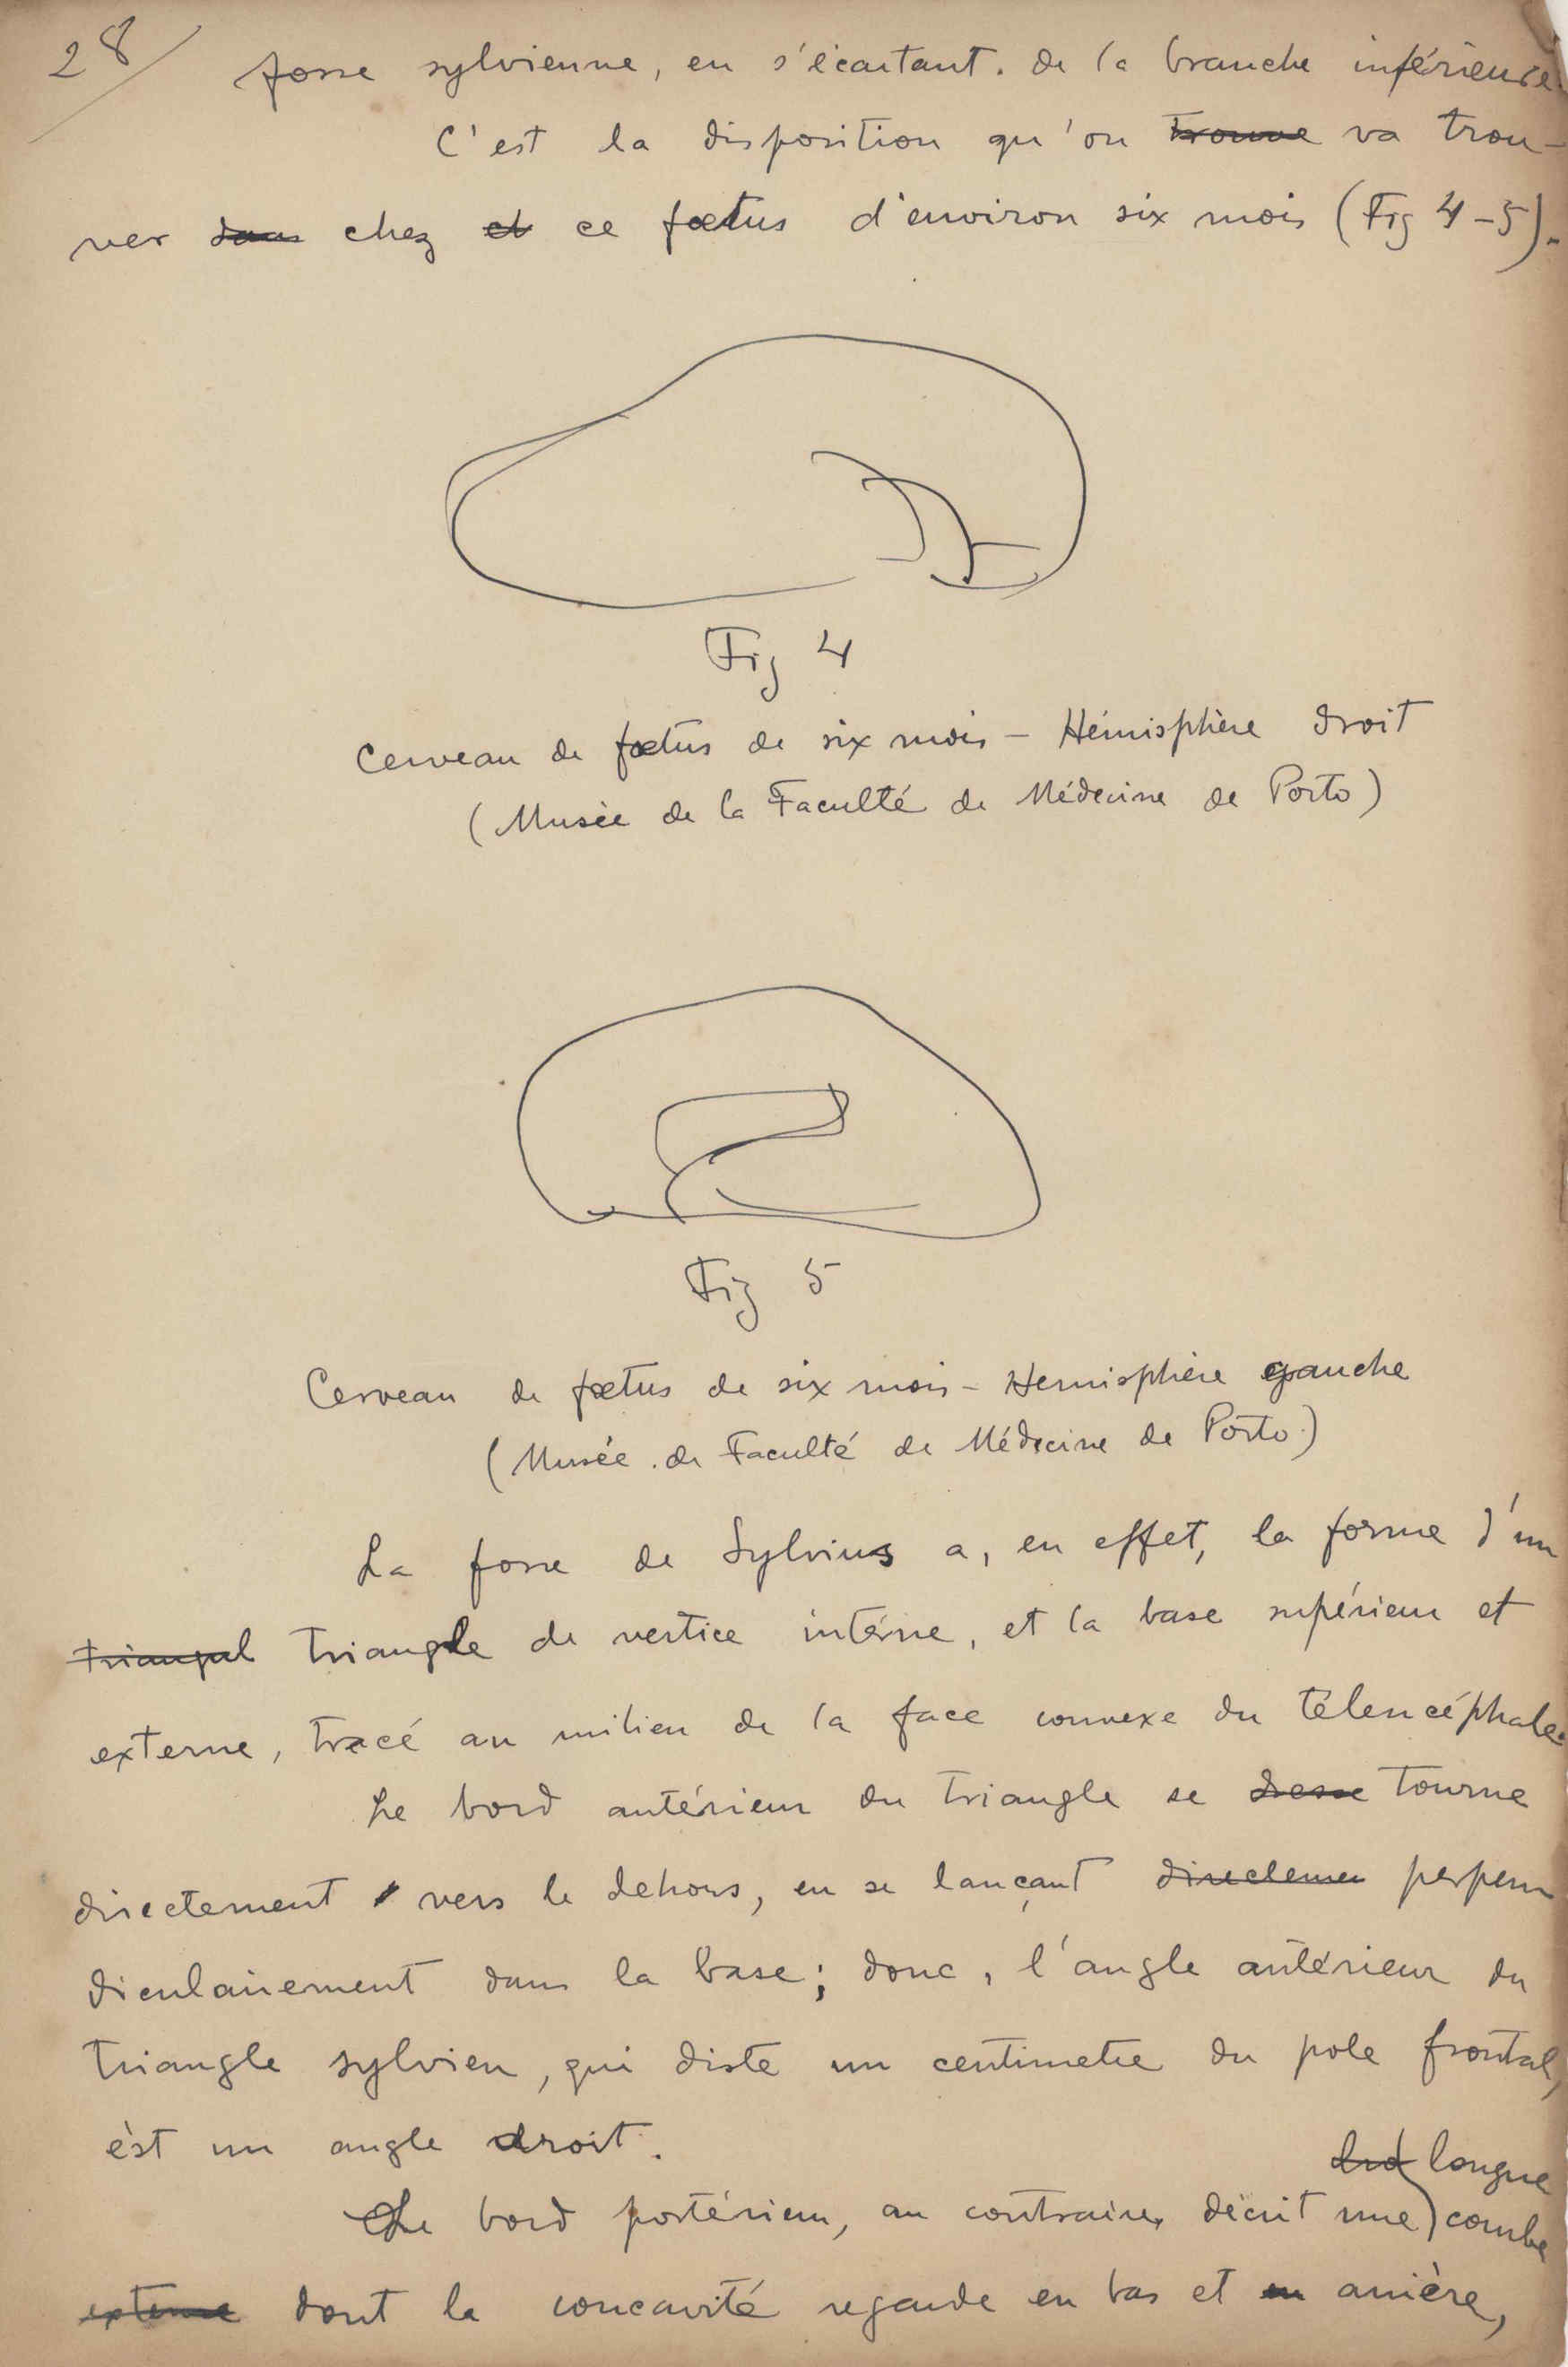 28/
fosse sylvienne, en s'écartant. de la branche inférieure.
C'est la disposition qu'on trouve va trou-
ver dans chez et ce fœtus d'environ six mois (Fig 4-5).
Fig 4
Cerveau de fœtus de six mois - Hémisphère droit
(Musée de la Faculté de Médecine de Porto)
Fig 5
Cerveau de fœtus de six mois - Hemisphère gauche
(Musée de Faculté de Médecine de Porto)
La fosse de Sylvius a, en effet, la forme d'un
triangul triangle de vertice intérne, et la base supérieur et
externe, tracé au milieu de la face convexe du télencéphale.
Le bord antérieur du triangle se dresse tourne
directement vers le dehors, en se lançant directemen perpen
diculairement dans la base; donc, l'angle antérieur du
triangle sylvien, qui diste un centimetre du pole frontal,
èst un angle droit.
longue
Le bord postérieur, au contraire, décrit une courbe
externe dont la concavité regarde en bas et en arrière,